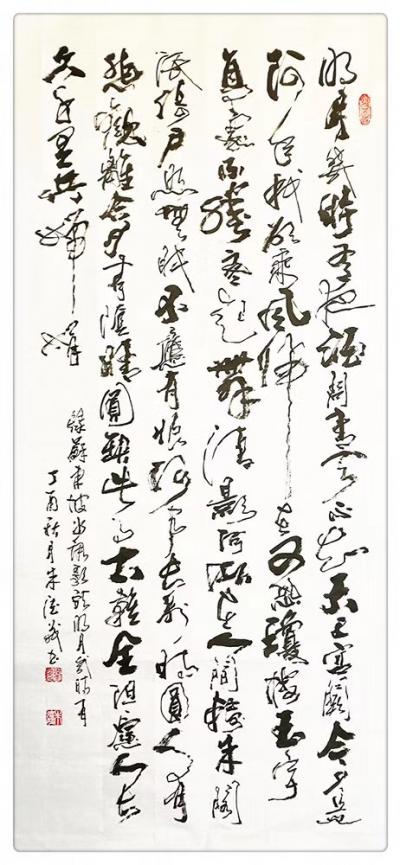 明月幾時有把酒問青天不知天上宮闕今夕是
何年我欲乘風歸去又恐瓊樓玉宇
高處不勝寒起舞弄清影何似在人間轉朱閣
低綺戶照無眠不應有恨何事長向別時圓人有
悲歡離合月有陰晴圓缺此事古難全但願人長
久千里共嬋娟
錄蘇東坡水調歌頭明月幾時有
丁酉秋月朱德書